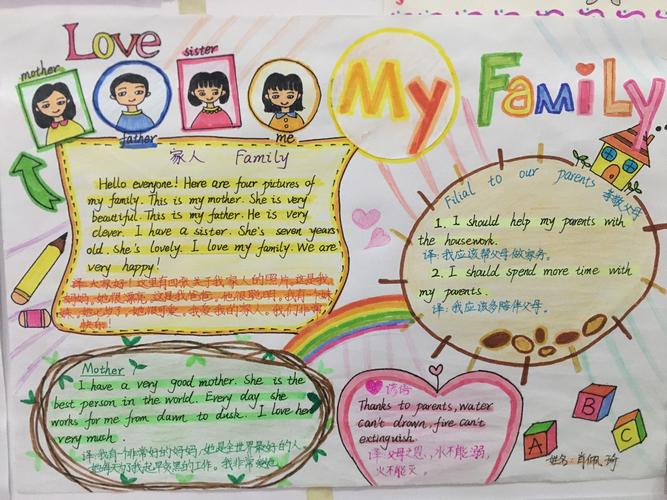 Love
My Family
mother
father
sister
me
家人 Family
Hello everyone! Here are four pictures of
my family. This is my mother. She is very
beautiful. This is my father. He is very
clever. I have a sister. She's seven years
old. She's lovely. I love my family. We are
very happy!
译:大家好!这里有四张关于我家人的照片,这是我
妈妈,她很漂亮,这是我爸爸,他很聪明,我有一个妹
妹,她七岁了,她很可爱,我爱我的家人。我们非常
快乐!
Filial to our parents
孝敬父母
1. I should help my parents with
the housework.
译:我应该帮父母做家务。
2. I should spend more time with
my parents.
译:我应该多陪伴父母。
Mother
I have a very good mother. She is the
best person in the world. Every day she
works for me from dawn to dusk. I love her
very much.
译:我有一个非常好的妈妈,她是全世界最好的人,
她每天为了我起早贪黑的工作。我非常爱她
谚语
Thanks to parents, water
can't drown, fire can't
extinguish.
译:父母之恩,水不能溺,
火不能灭。
A
B
C
姓名:肖佩琦